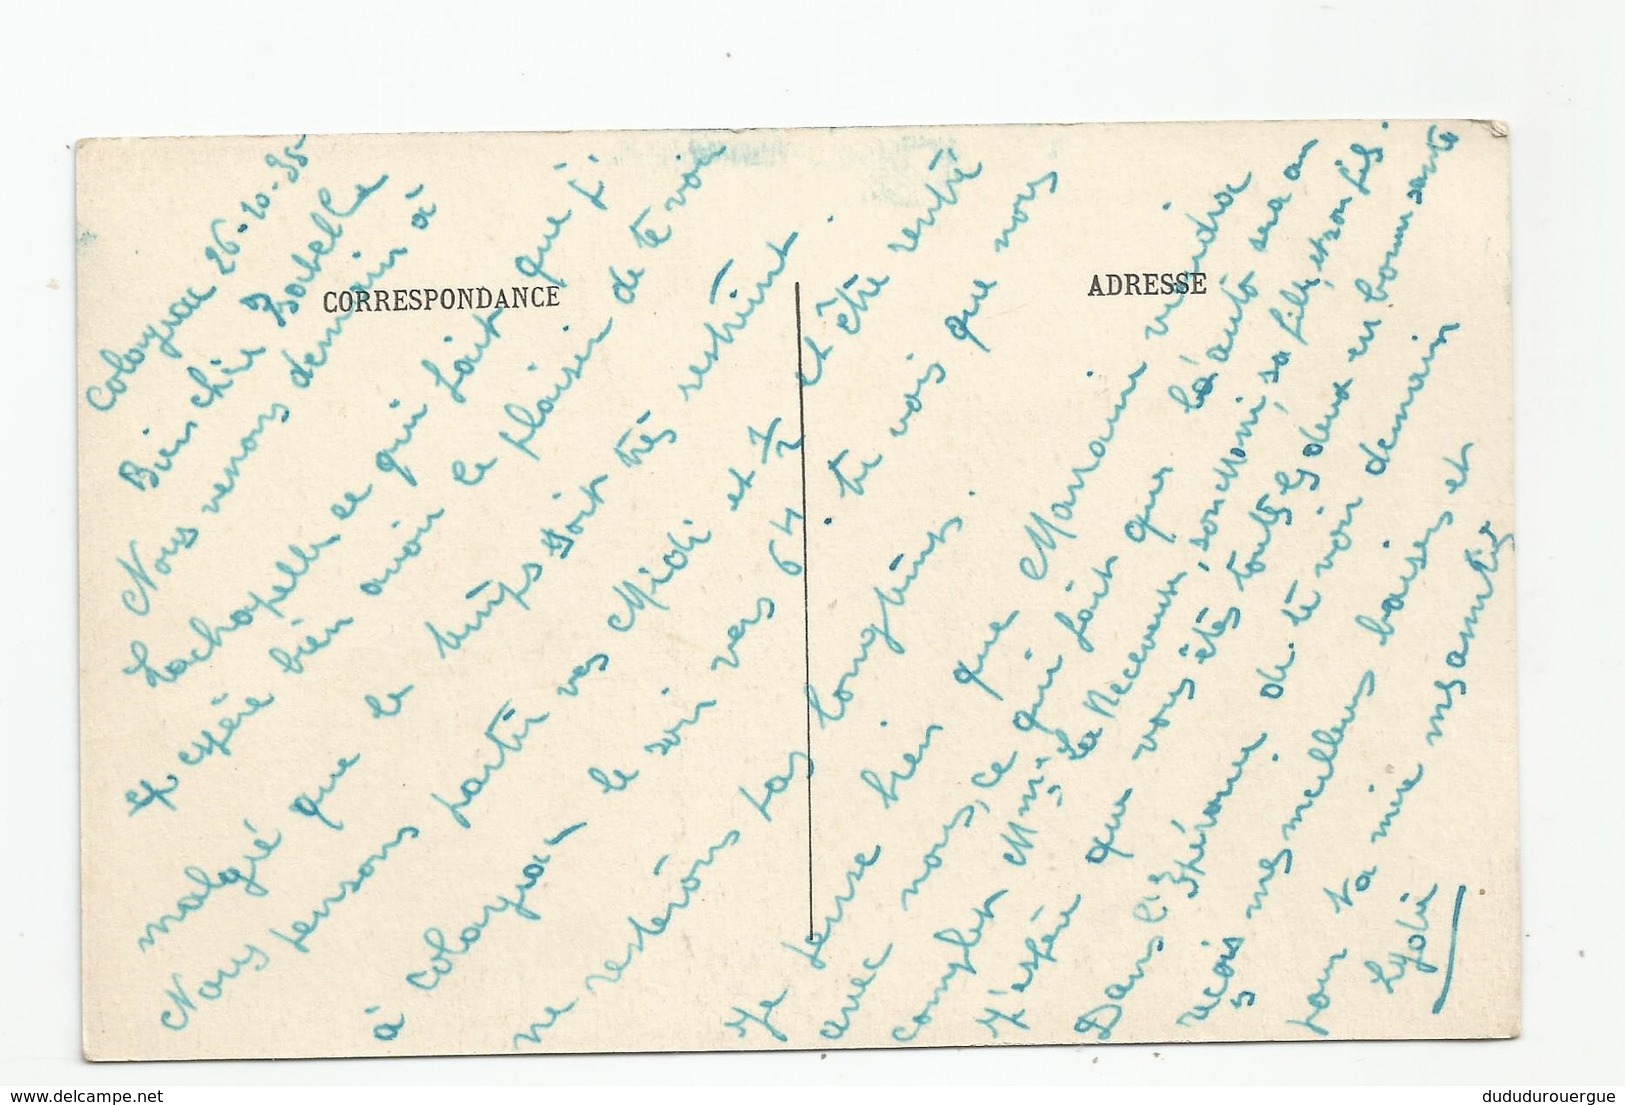 Colayrac 26-10-35
Bien chère Isabelle
Nous venons demain à
Lachapelle ce qui fait que j'
espère bien avoir le plaisir de te voir
malgré que le temps soit très restreint.
Nous pensons partir vers Midi et ½
à Colayrac le soir vers 6h et être rentré
ne resterons pas longtemps. tu vois que nous
Je pense bien que Marraine viendra
avec nous, ce qui fait que l'auto sera au
complet Mme La Receveuse, son Mari, sa fille, et son fils.
J'espère que vous êtes toutes deux en bonne santé
Dans l'espérance de te voir demain
reçois mes meilleurs baisers et
pour ta mère mes amitiés
Lydie
CORRESPONDANCE
ADRESSE
delcampe.net
dududurouergue